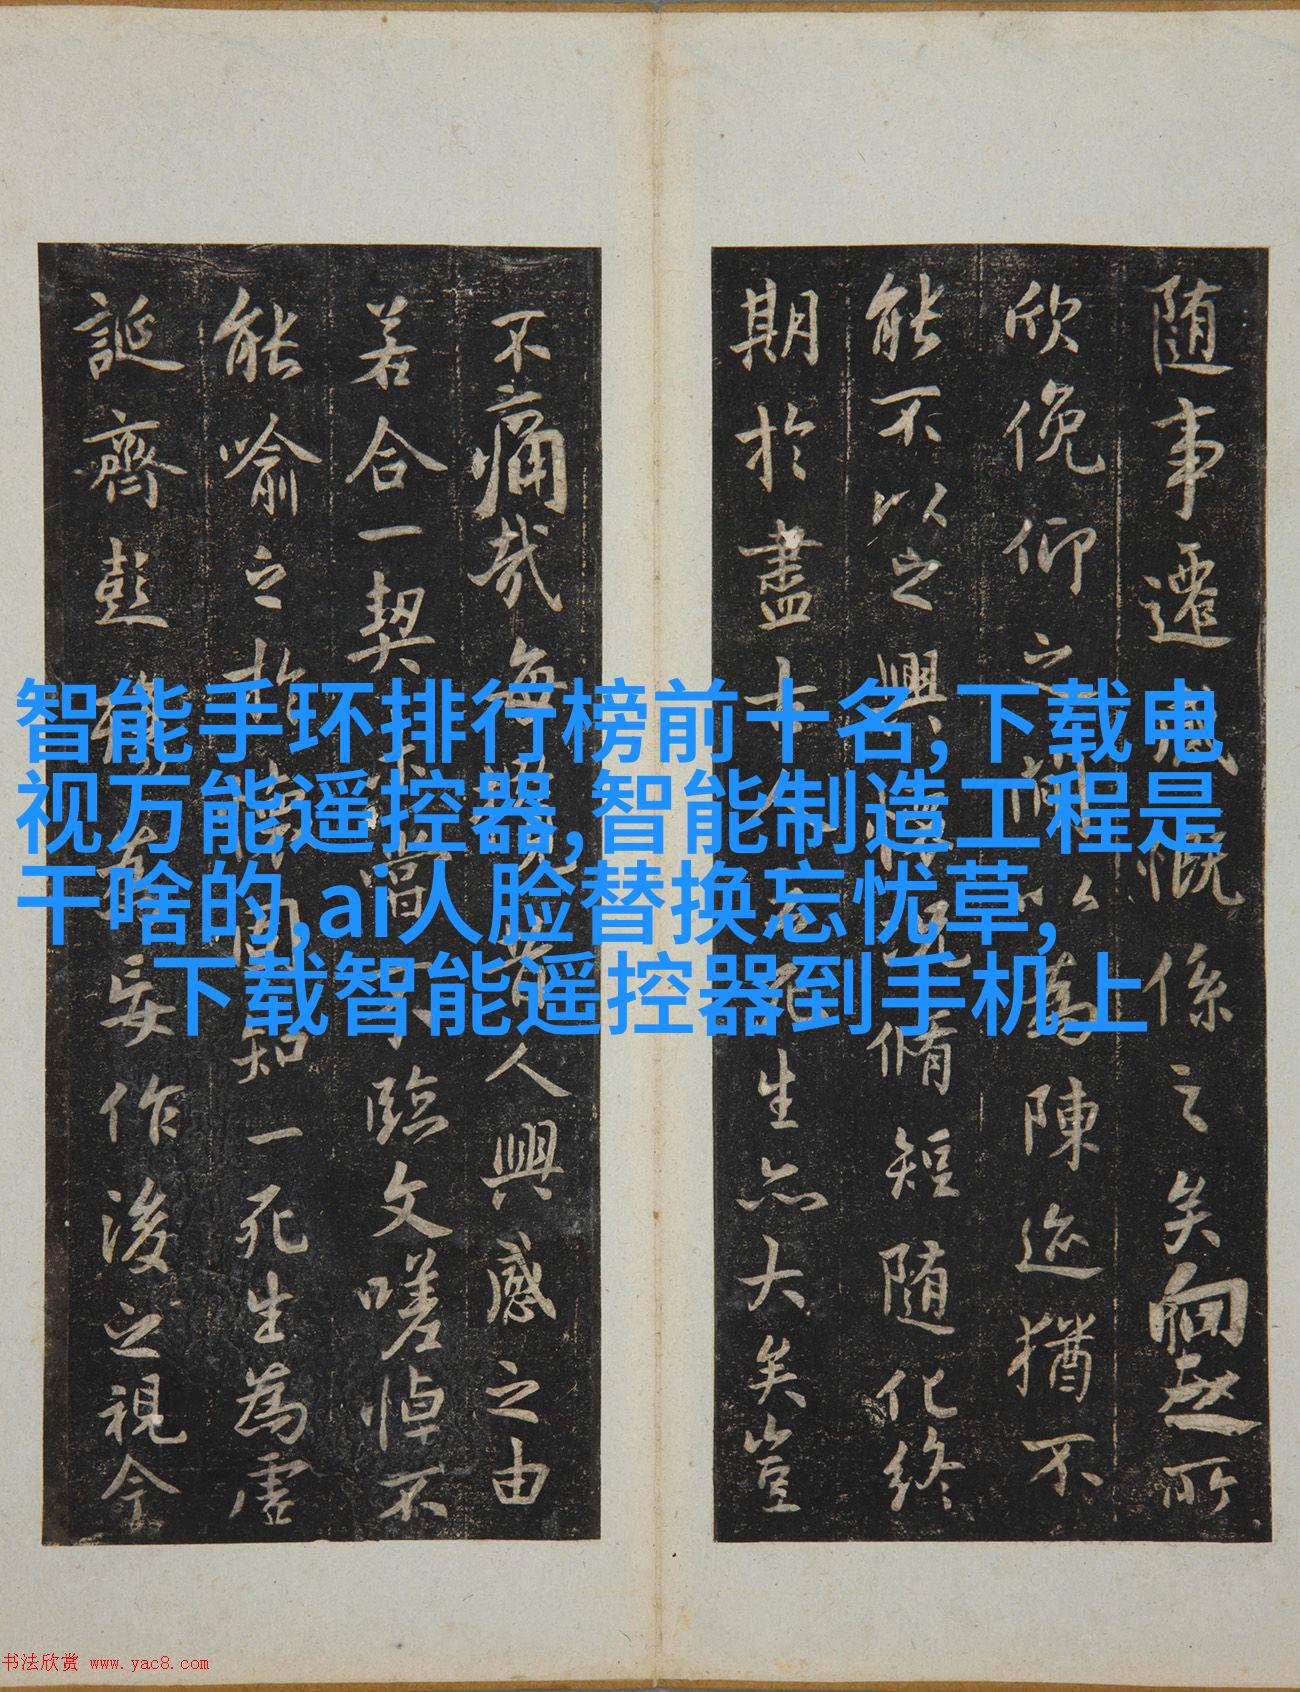 随事遷感慨係之矣向之所
欣俛仰之間以為陳迹猶不
能不以之興懷況脩短随化終
期於盡古人云死生亦大矣豈
不痛哉每攬昔人興感之由
若合一契未嘗不臨文嗟悼不
能喻之於懷固知一死生為虛
誕齊彭殤為妄作後之視今
智能手环排行榜前十名,下载电
视万能遥控器,智能制造工程是
干啥的,ai人脸替换忘忧草,
下载智能遥控器到手机上
书法欣赏 www.yac8.com